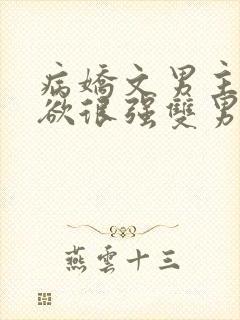 病嬌文男主
欲很强雙男
燕雲十三